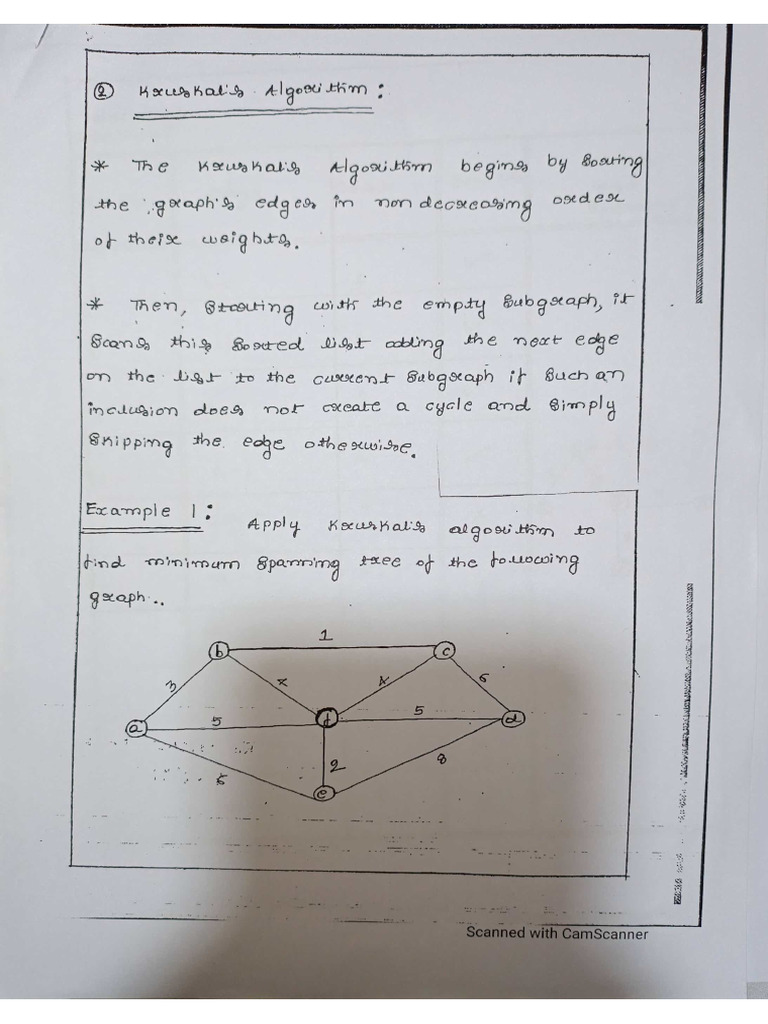 ② Kruskal's Algorithm:
* The Kruskal's Algorithm begins by sorting
the graph's edges in non decreasing order
of their weights.
* Then, Starting with the empty subgraph, it
scans this sorted list adding the next edge
on the list to the current subgraph if such an
inclusion does not create a cycle and simply
skipping the edge otherwise.
Example 1:
Apply Kruskal's algorithm to
find minimum spanning tree of the following
graph..
1
b
c
3
4
6
a
5
f
5
d
2
8
e
Scanned with CamScanner